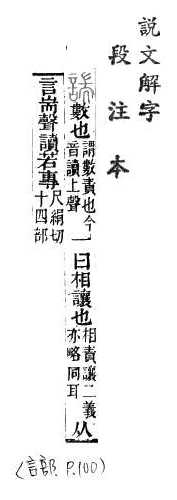 説文解字
段注本
諯 數也 謂數責也今音讀上聲 一曰相讓也 相責讓二義亦略同耳 从
言耑聲讀若專 尺絹切十四部
(言部 P.100)